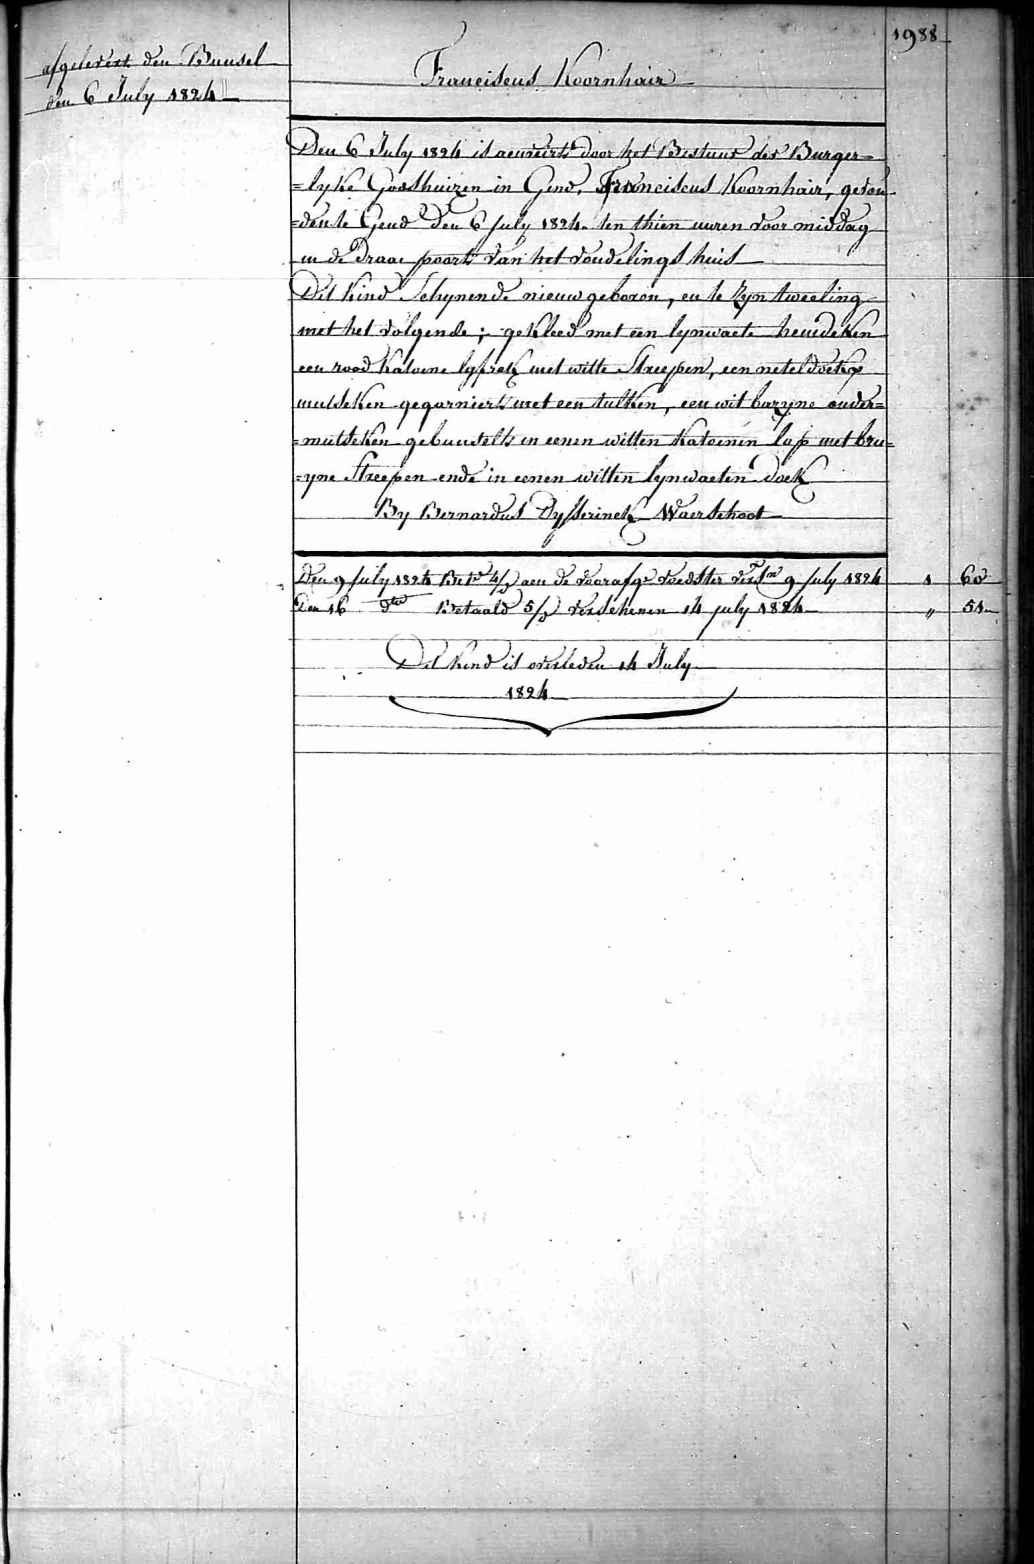 1988
afgelevert den Bunsel
den 6 July 1824
Franciscus Koornhair
Den 6 July 1824 is aenveirt door het Bestuur der Burger=
=lyke Godshuizen in Gend, Franciscus Koornhair, gevon
=den te Gend den 6 july 1824 ten thien uuren voor middag
in de draae poort van het vondelings huis
Dit kind Schynende nieuw geboren, en te zyn tweeling
met het volgende; gekleed met een lynwaete hemdeken
een rood katoene lyfrok met witte Streepen, een neteldoekx
mutseken gegarniert met een tulken, een wit bazyne onder=
=mutseken gebunselt in eenen witten katoenen lap met bru=
=yne Streepen ende in eenen witten lynwaeten doek
By Bernardus Dysserinck Waerschoot
Den 9 july 1824 Bet. 4/ aen de voorafge voedster 9 july 1824 1 60
Den 16 dto Betaald 5/ verschenen 14 july 1824 " 51
Dit kind is overleden 14 July
1824